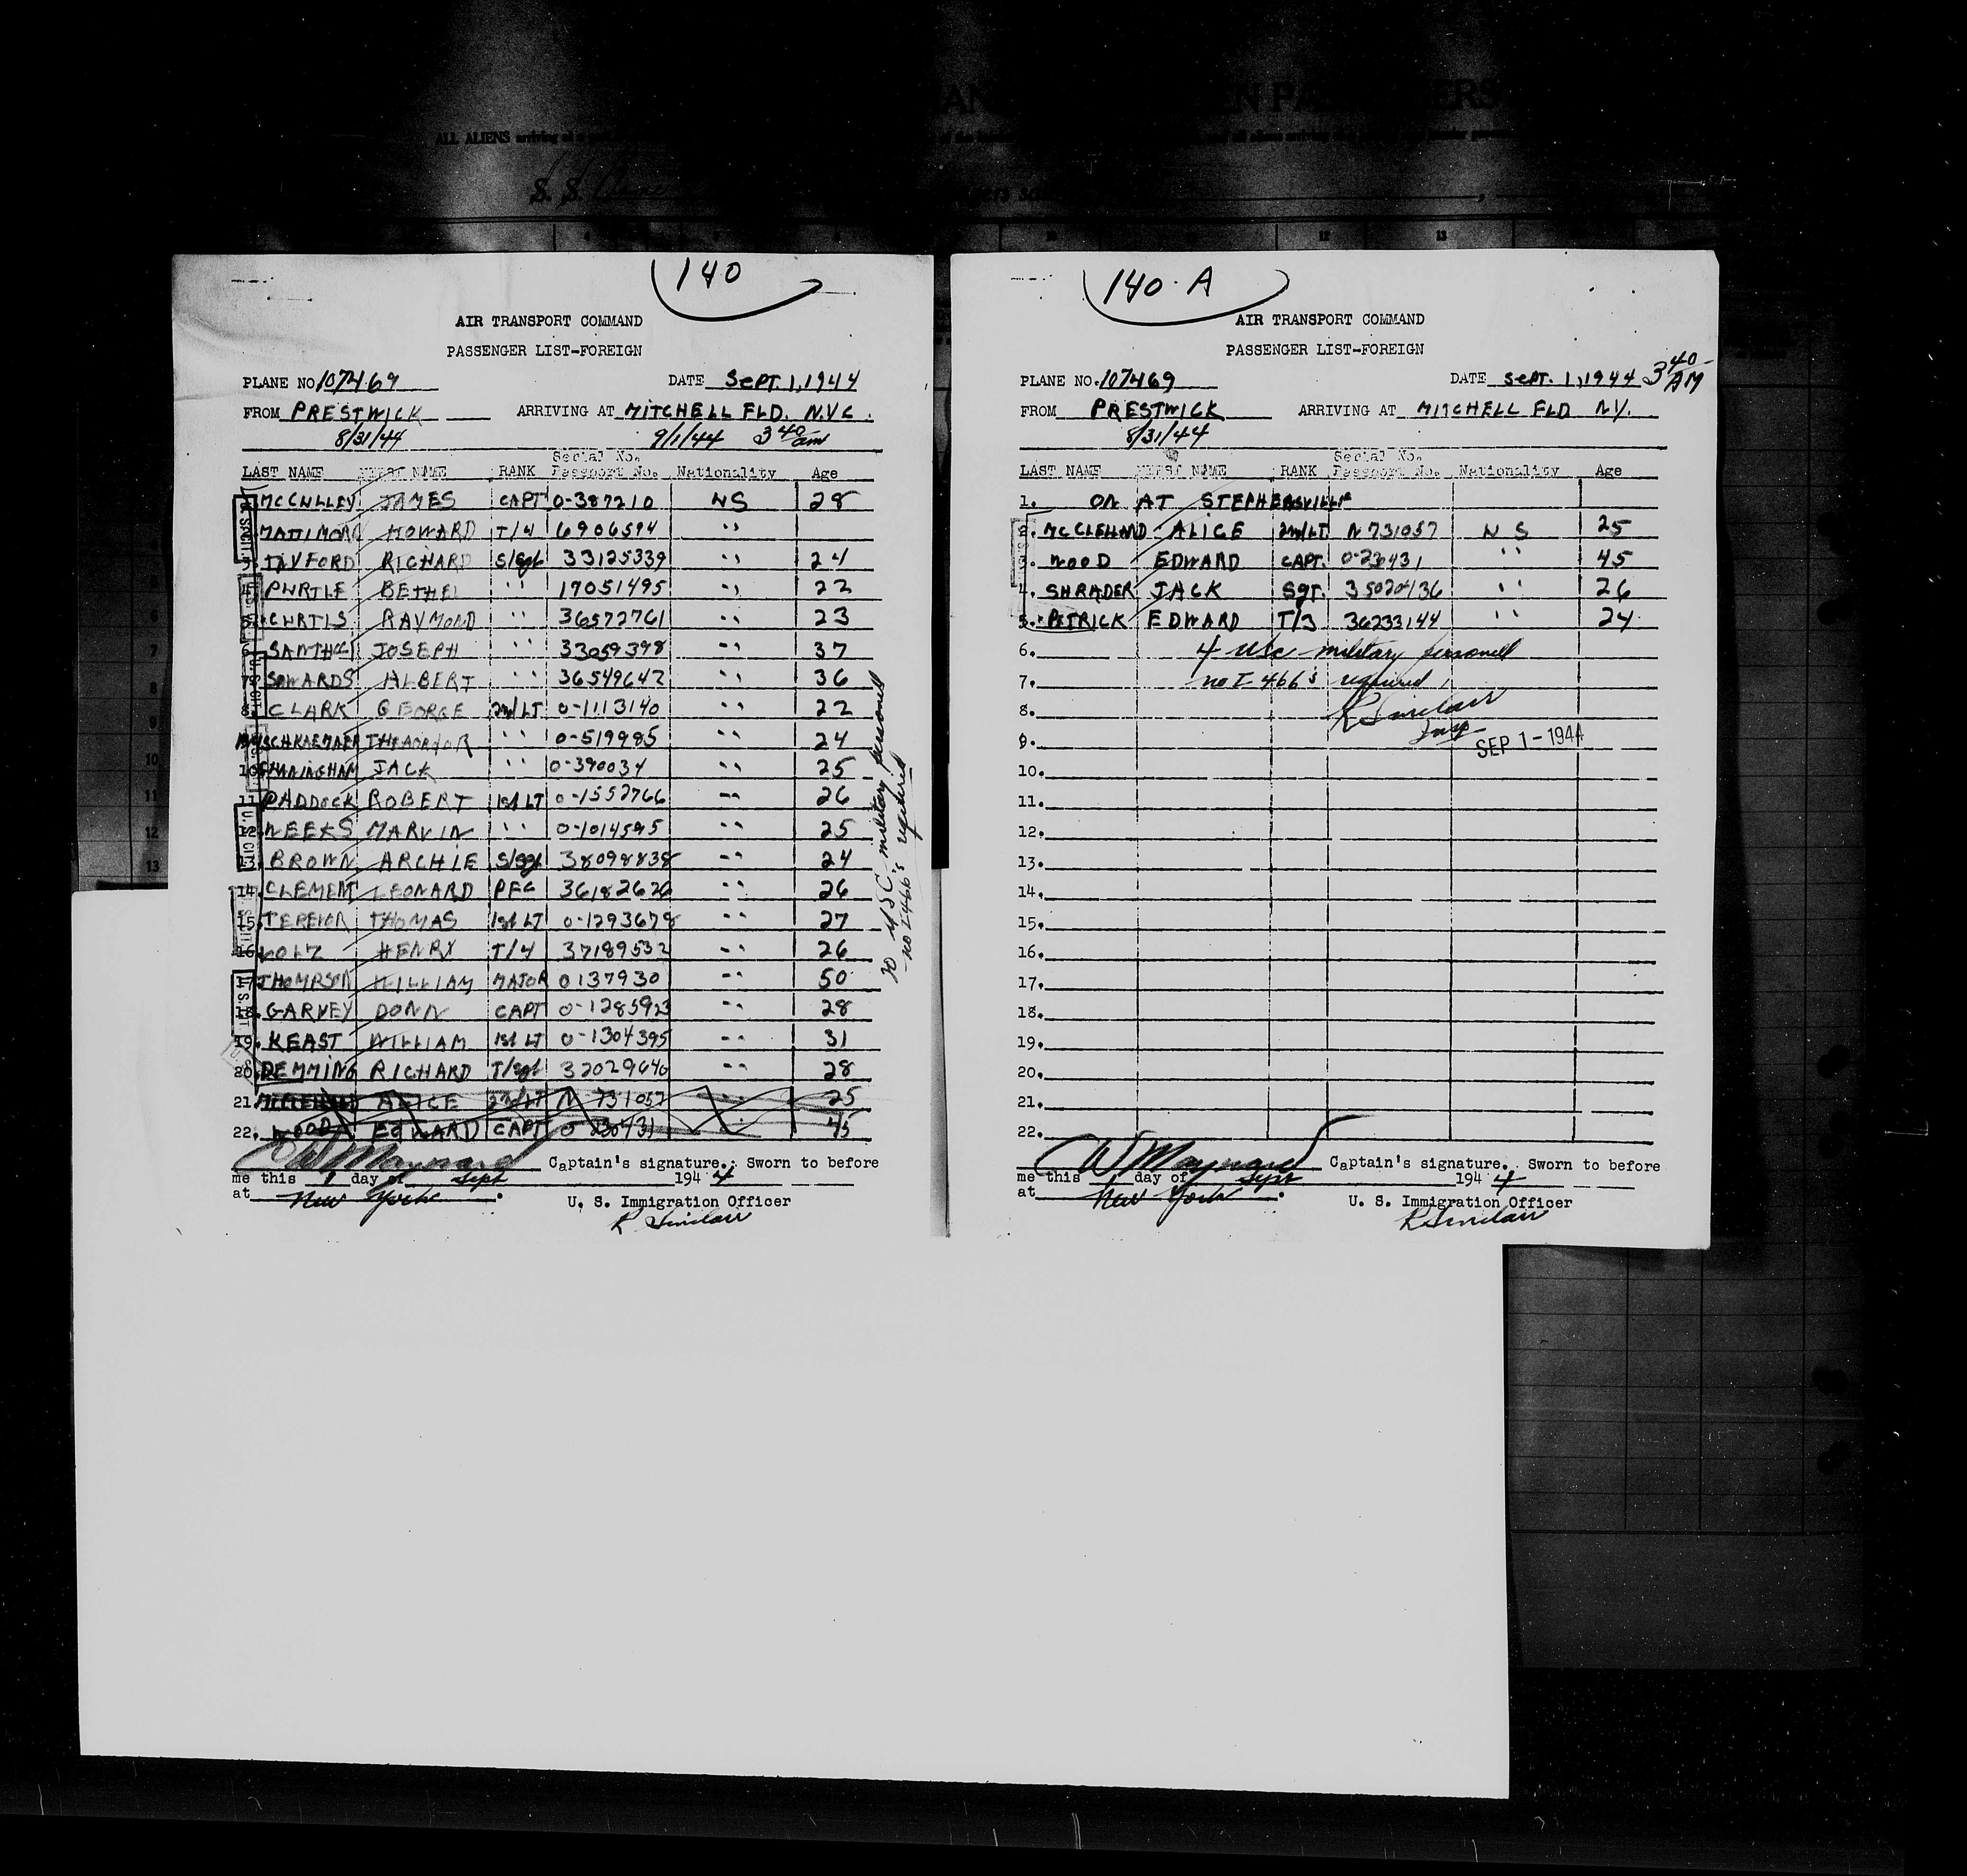 ALL ALIENS arriving at a
S. S.
140
AIR TRANSPORT COMMAND
PASSENGER LIST-FOREIGN
PLANE NO 107469 DATE SEPT. 1, 1944
FROM PRESTWICK ARRIVING AT MITCHELL FLD. N.Y.C.
8/31/44 9/1/44 3 40 am
LAST NAME FIRST NAME RANK Serial No. Passport No. Nationality Age
1. MCCULLEY JAMES CAPT 0-387210 US 28
HOWARD T/4 6906594 " "
RICHARD S/Sgt 33125339 " " 24
4. PURTLE BETHEL " " 17051495 " " 22
5. CURTIS RAYMOND " " 36572761 " " 23
JOSEPH " " 33059398 " " 37
7. SOWARDS ALBERT " " 36549642 " " 36
8. CLARK GEORGE 2nd LT 0-1113140 " " 22
" " 0-519985 " " 24
10. JACK " " 0-390034 " " 25
11. PADDOCK ROBERT 1st LT 0-1552766 " " 26
12. WEEKS MARVIN " " 0-1014595 " " 25
13. BROWN ARCHIE S/Sgt 38098838 " " 24
14. CLEMENT LEONARD PFC 36182626 " " 26
15. THOMAS 1st LT 0-1293678 " " 27
16. HENRY T/4 37189532 " " 26
17. THOMPSON WILLIAM MAJOR 0137930 " " 50
18. GARVEY DONN CAPT 0-1285923 " " 28
19. KEAST WILLIAM 1st LT 0-1304395 " " 31
20. DEMMING RICHARD T/Sgt 32029640 " " 28
21. MCCLELLAND ALICE 2nd LT N 731057 " " 25
22. WOOD EDWARD CAPT 0 230431 45
20 USC military personell
no I-466's required
C W Maynard Captain's signature. Sworn to before
me this 1 day of Sept 194 4
at New York. U. S. Immigration Officer
R Sinclair
140-A
AIR TRANSPORT COMMAND
PASSENGER LIST-FOREIGN
PLANE NO. 107469 DATE SEPT. 1, 1944 3 40 AM
FROM PRESTWICK ARRIVING AT MITCHELL FLD N.Y.
8/31/44
LAST NAME FIRST NAME RANK Serial No. Passport No. Nationality Age
1. ON AT STEPHENSVILLE
2. MCCLELLAND ALICE 2nd LT N 731057 U S 25
3. WOOD EDWARD CAPT. 0-230431 " " 45
4. SHRADER JACK Sgt. 35020136 " " 26
5. PETRICK EDWARD T/3 36233144 " " 24
6. 4 USC military personell
7. no I-466's required
8. R Sinclair
9. SEP 1 - 1944
10.
11.
12.
13.
14.
15.
16.
17.
18.
19.
20.
21.
22.
C W Maynard Captain's signature. Sworn to before
me this 1 day of Sept 194 4
at New York. U. S. Immigration Officer
R Sinclair